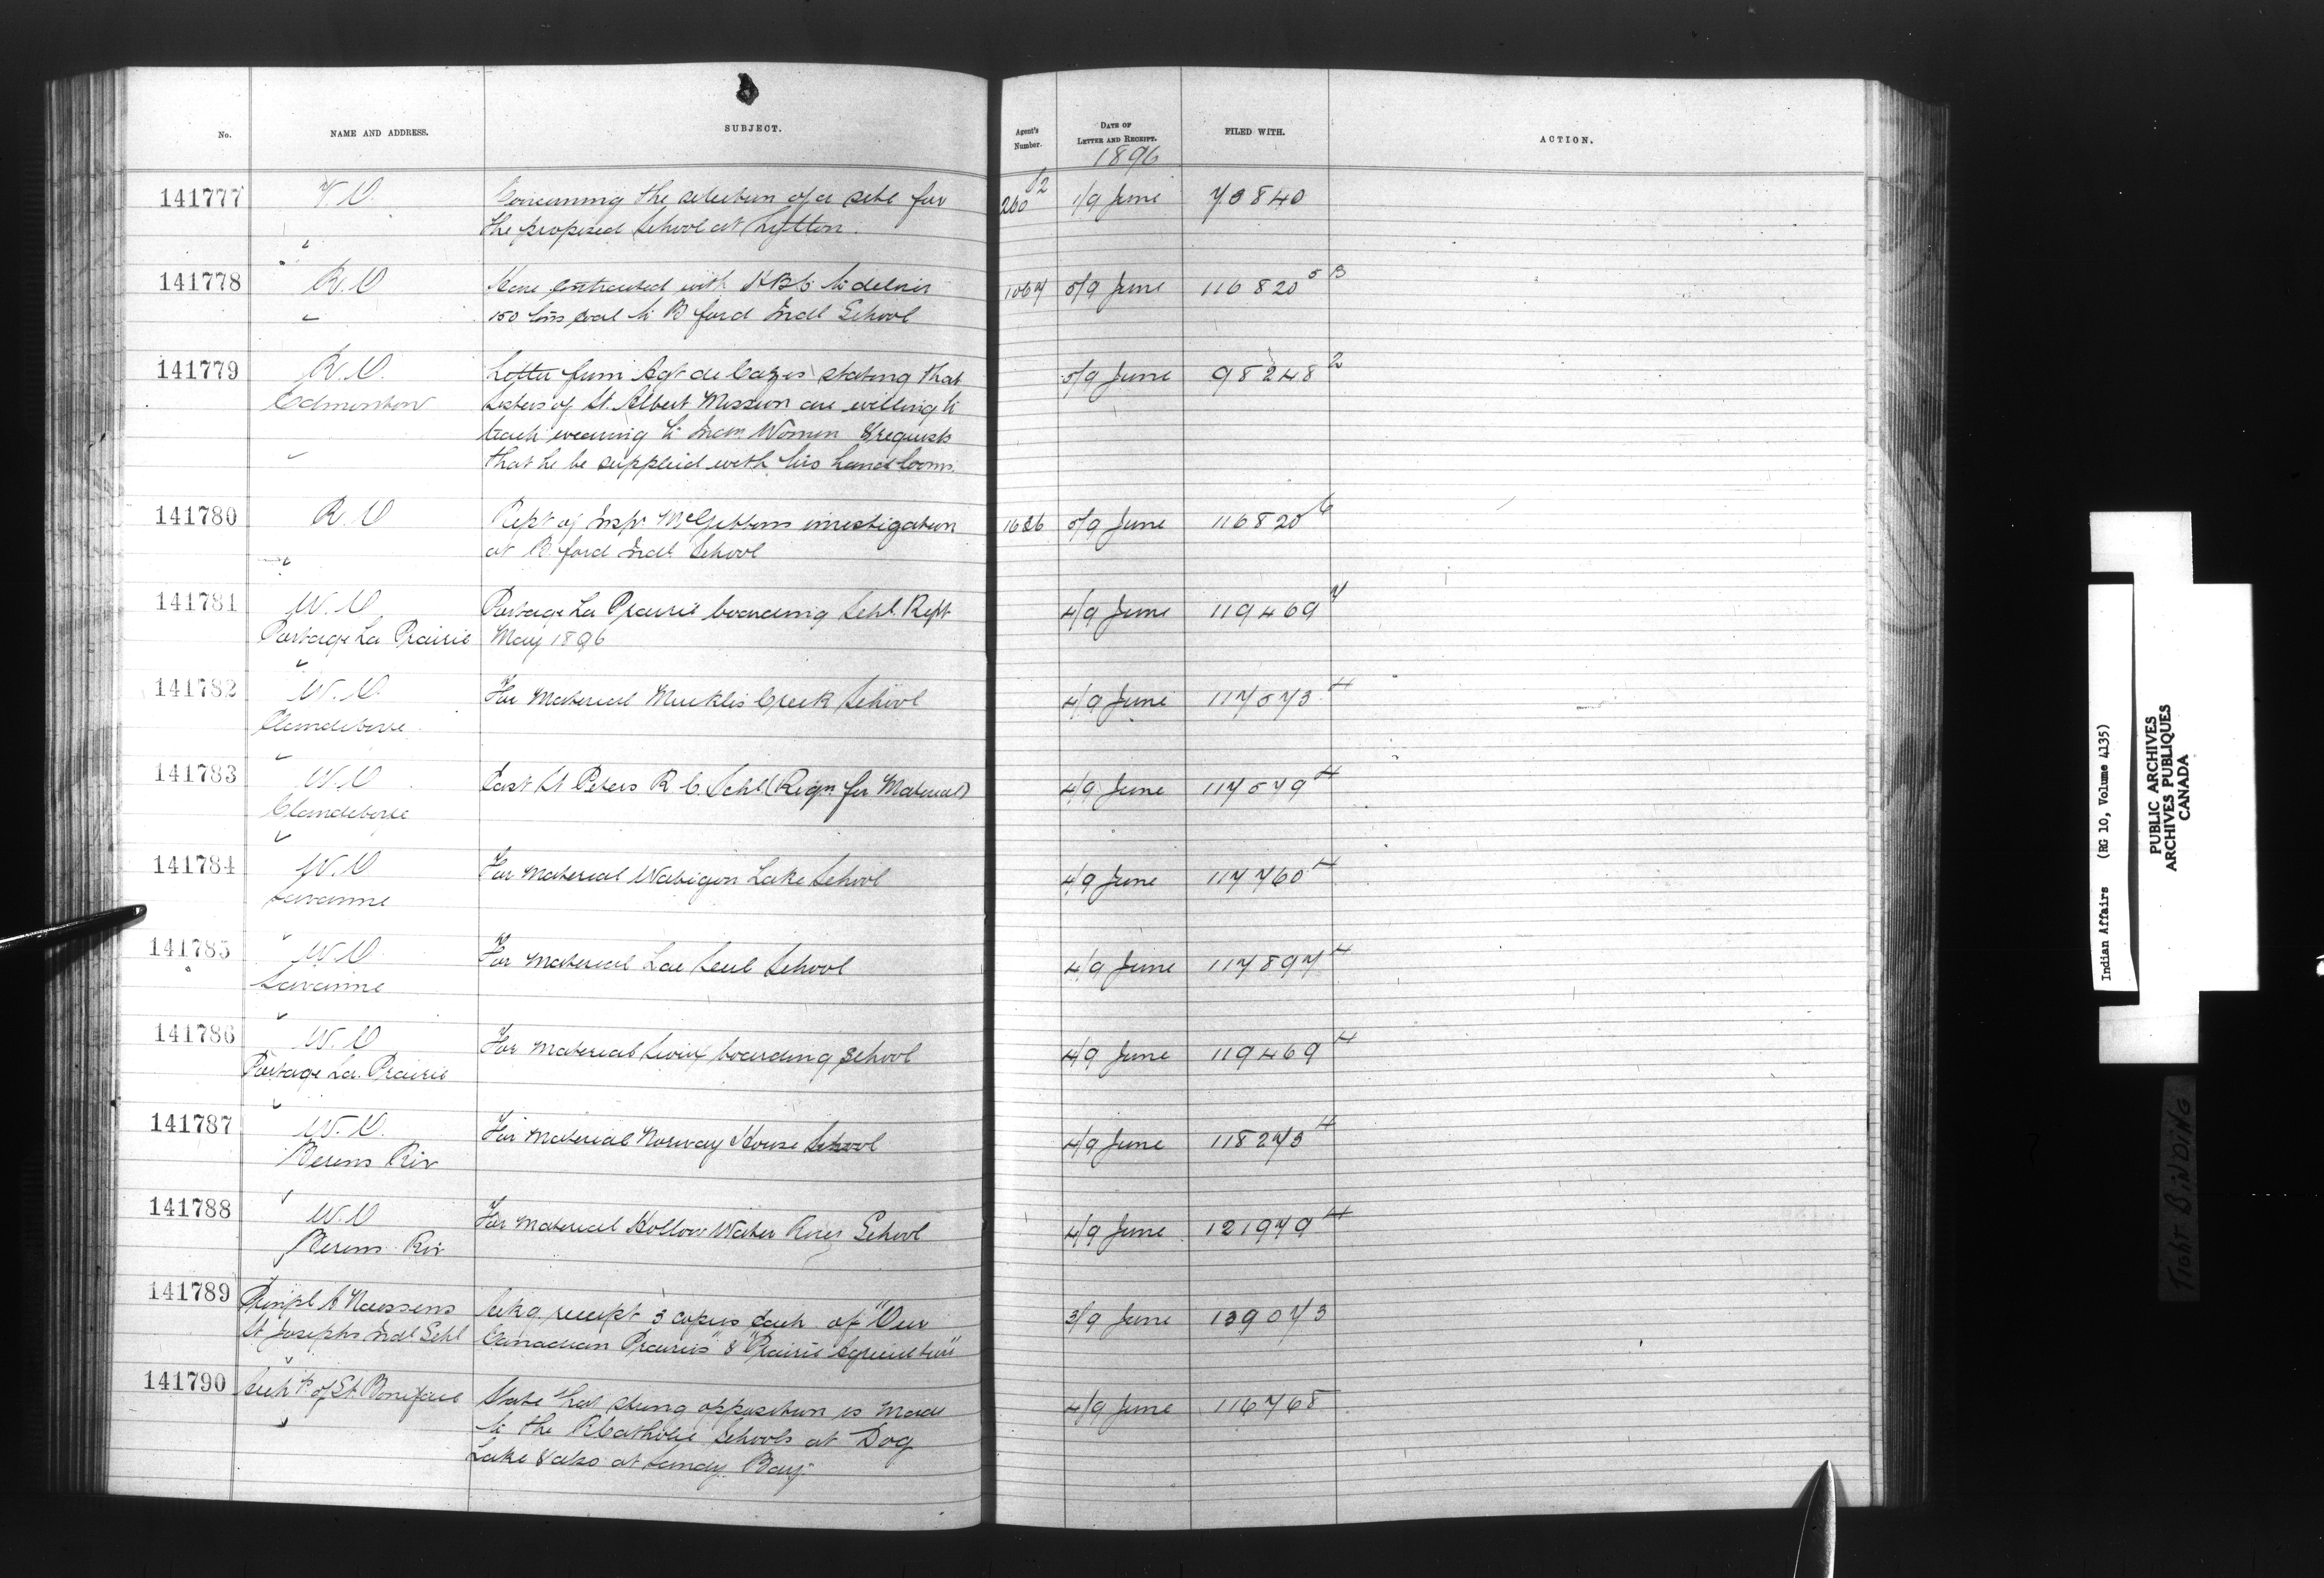 No. NAME AND ADDRESS. SUBJECT. Agent's Number. DATE OF LETTER AND RECEIPT. FILED WITH. ACTION.
1896
141777 V.O. Concerning the selection of a site for 260 1/9 June 73840
the proposed School at Lytton.
141778 R.O Have contracted with HBC to deliver 1067 5/9 June 116820 5 B
150 tons coal to B ford Indl School
141779 R.O. Letter from Agt de Cazes stating that 5/9 June 98248 2
Edmonton Sisters of St. Albert Mission are willing to
teach weaving to Indn Women & requests
that he be supplied with two hand looms.
141780 R.O Rept of Inspr McGibbons investigation 1626 5/9 June 116820 6
at B. ford Indl School
141781 W.O Portage La Prairie boarding Schl Rept 4/9 June 119469 7
Portage La Prairie May 1896
141782 W.O. For Material Muckles Creek School 4/9 June 117573 4
Clandeboye
141783 W.O East St Peters R.C. Schl (Reqn for Material) 4/9 June 117579 4
Clandeboye
141784 W.O For material Wabigon Lake School 4/9 June 117760 4
Savanne
141785 W.O For material Lac Seul School 4/9 June 117897 4
Savanne
141786 W.O For material Sioux boarding School 4/9 June 119469 4
Portage La. Prairie
141787 W.O. For material Norway House School 4/9 June 118273 4
Berens Riv
141788 W.O For material Hollow Water River School 4/9 June 121979 4
Berens Riv
141789 Prinpl A Naessens Ackg receipt 3 copies each of "Our 3/9 June 139073
St Josephs Indl Schl Canadian Prairies" & "Prairie Agriculture"
141790 Archbp of St. Boniface State that strong opposition is made 4/9 June 116768
to the R Catholic Schools at Dog
Lake & also at Sandy Bay.
Indian Affairs (RG 10, Volume 4135)
PUBLIC ARCHIVES
ARCHIVES PUBLIQUES
CANADA
TIGHT BINDING